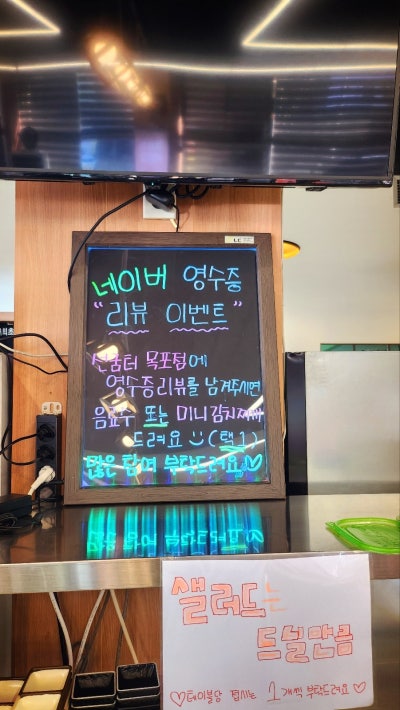 네이버 영수증
"리뷰 이벤트"
목포점에
영수증리뷰를 남겨주시면
음료수 또는 미니김치찌개
드려요 (택1)
많은 참여 부탁드려요♡
샐러드는
드실만큼
♡테이블당 접시는 1개씩 부탁드려요♡